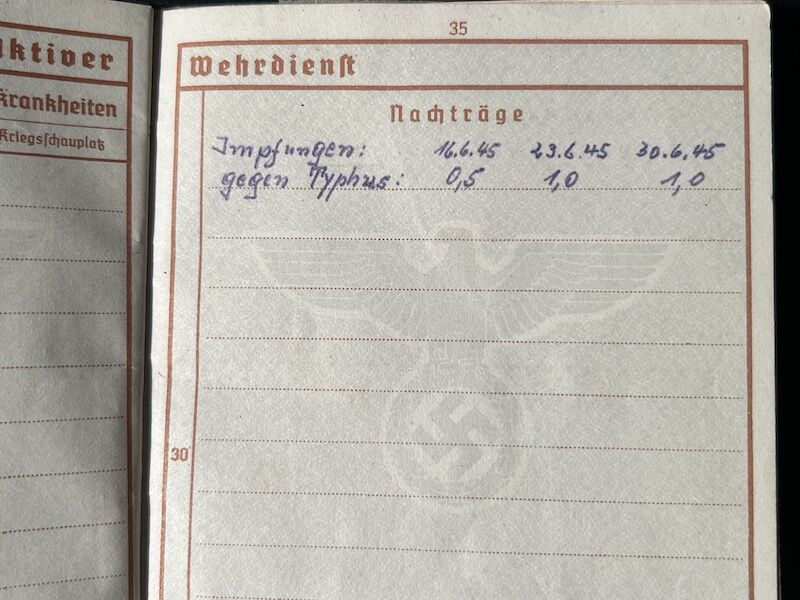 35
aktiver
krankheiten
Kriegsschauplatz
Wehrdienst
Nachträge
Impfungen: 16.6.45 23.6.45 30.6.45
gegen Typhus: 0,5 1,0 1,0
30